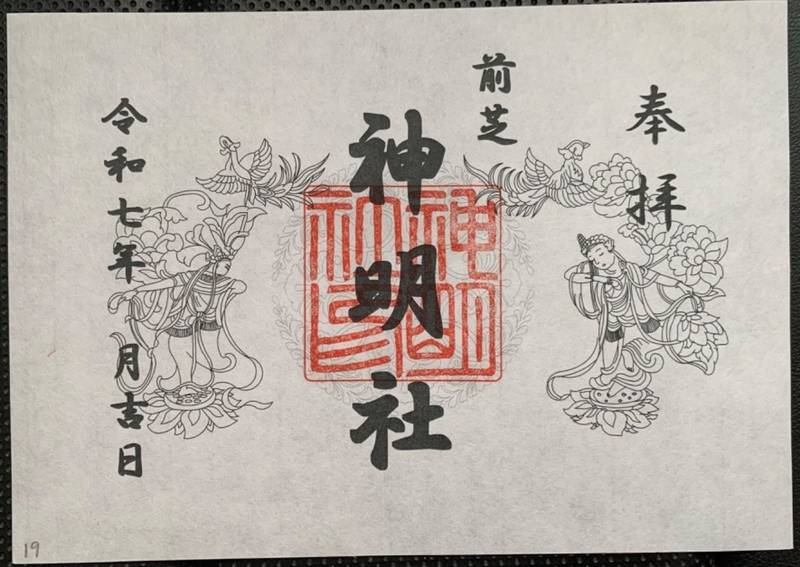 奉拝
前芝
神明社
神明社印
令和七年 月吉日
19